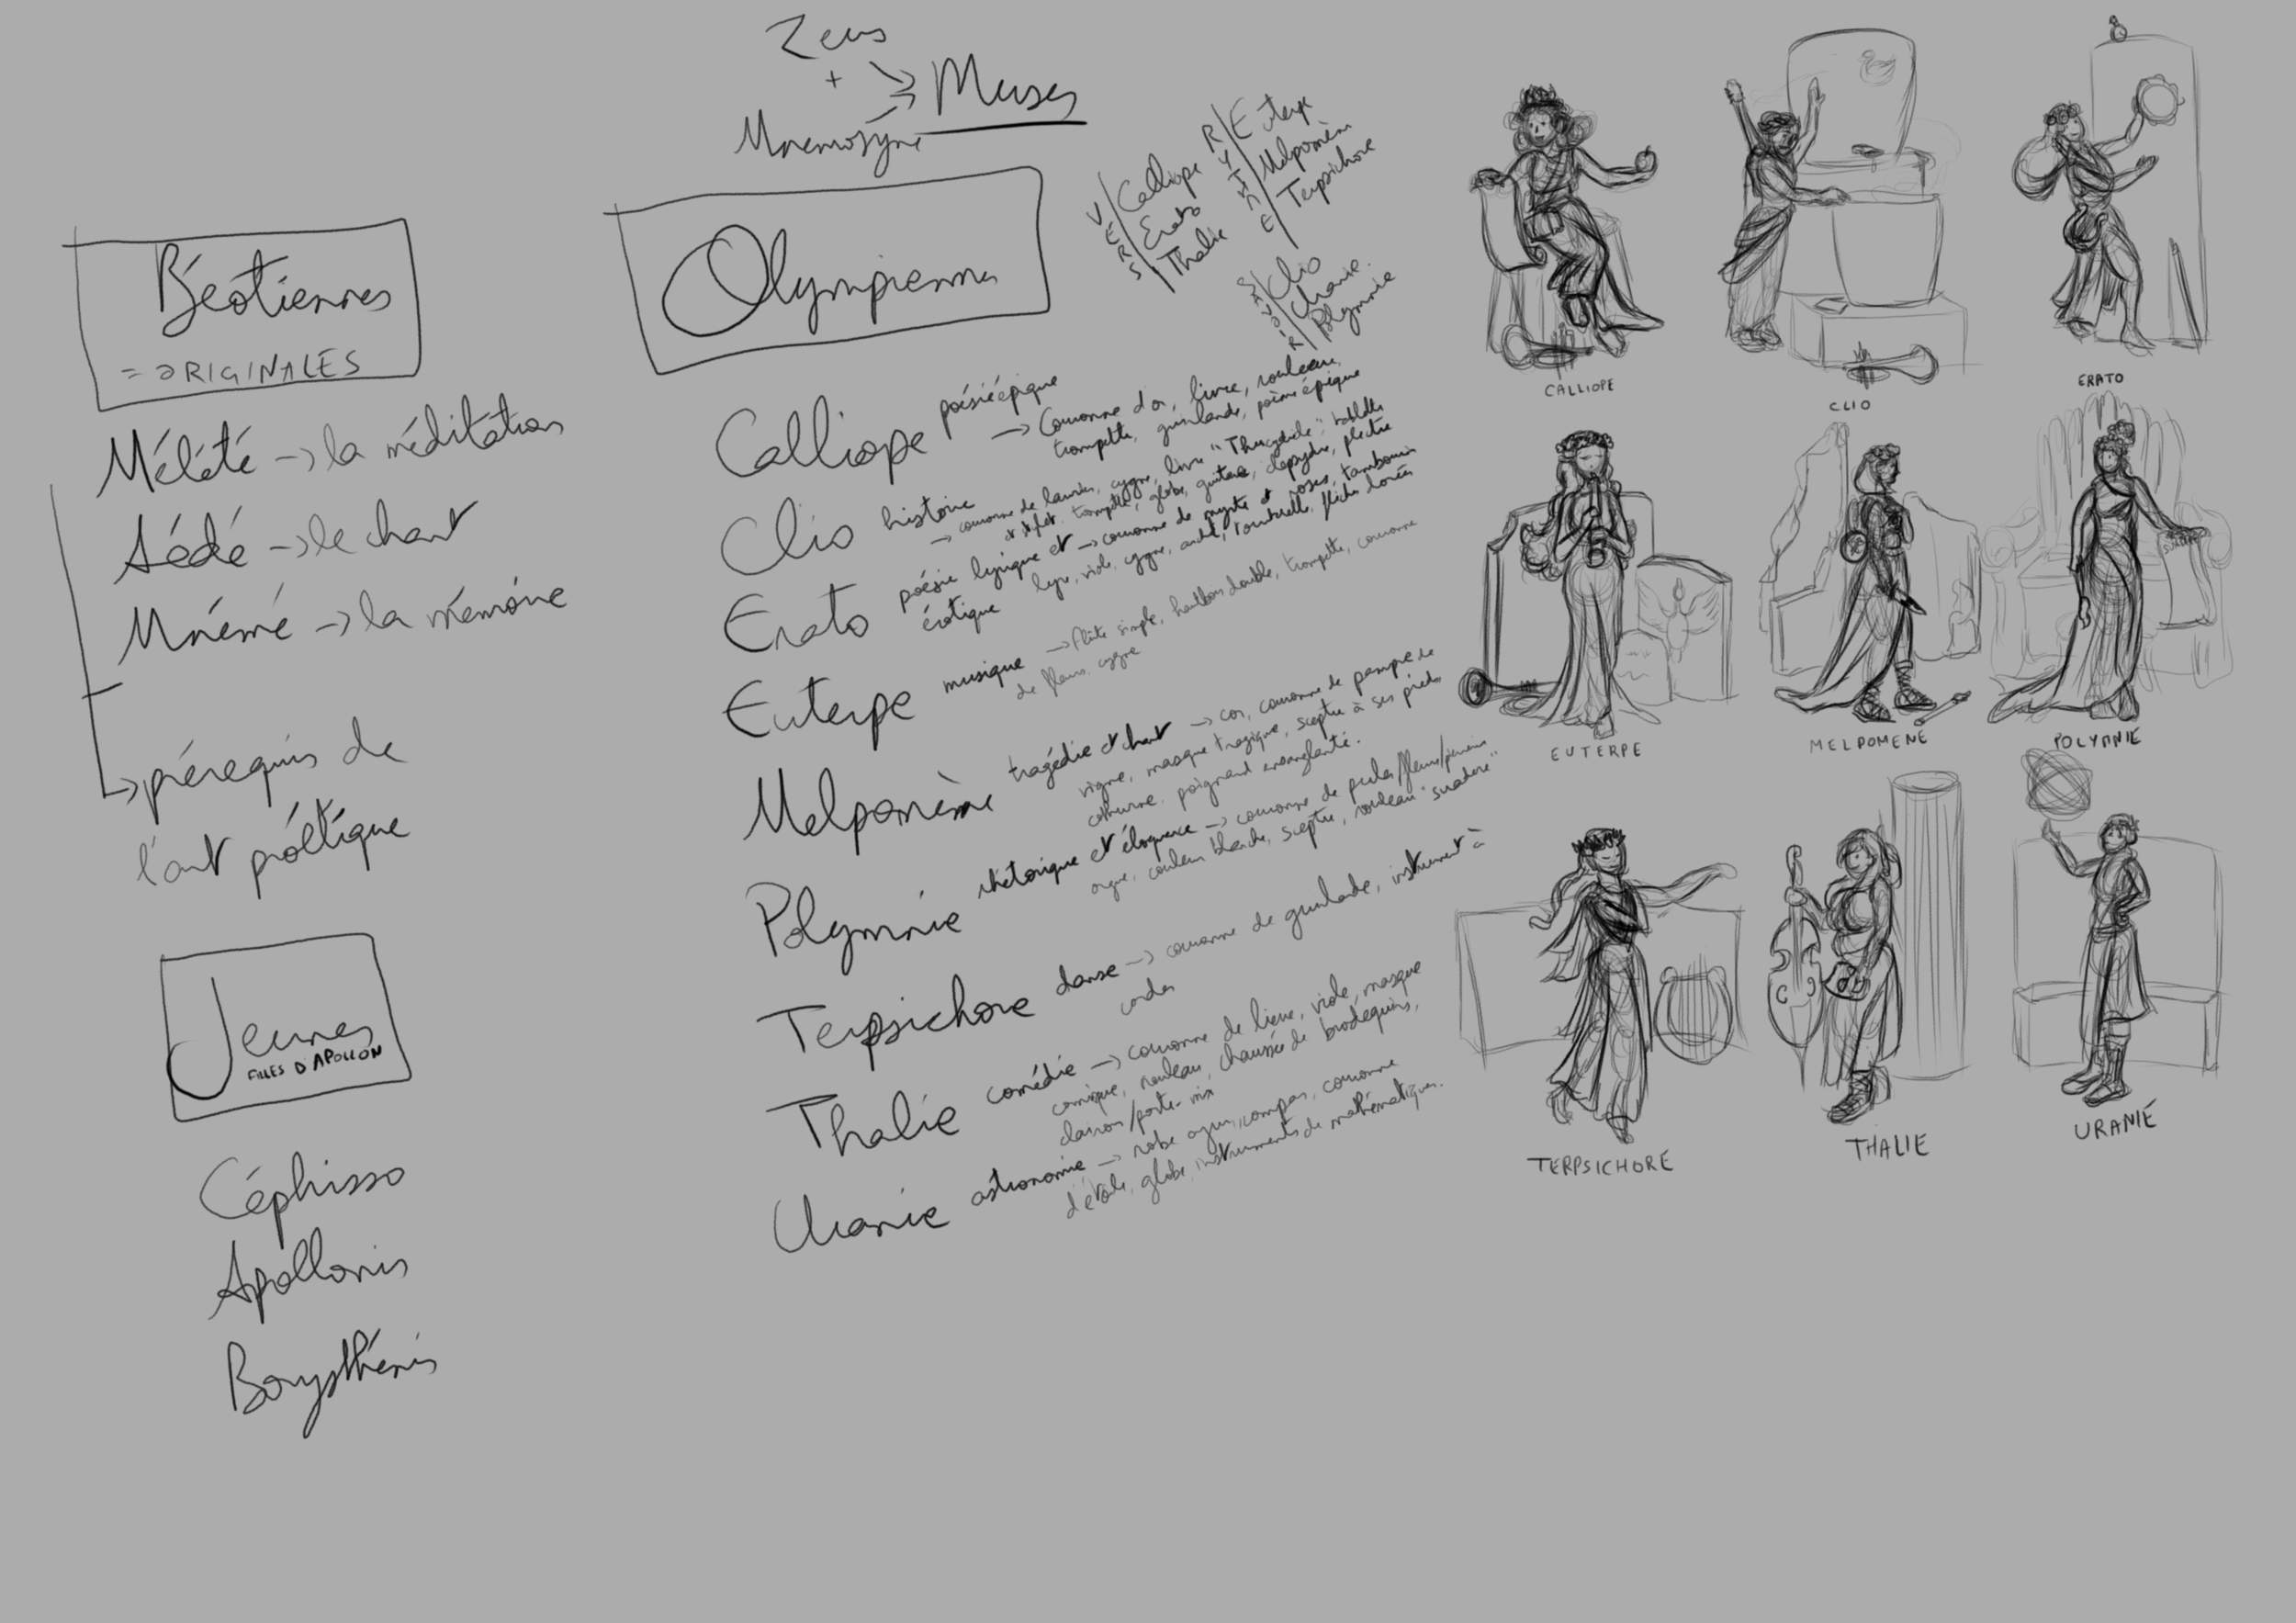 Zeus
+
Mnemosyne
Muses
Béotiennes
= ORIGINALES
Mélété → la méditation
Aédé → le chant
Mnémé → la mémoire
prérequis de
l'art poétique
Jeunes
FILLES D'APOLLON
Céphisso
Apollonis
Borysthénis
Olympiennes
VERS
Calliope
Erato
Thalie
RYTHME
Euterpe
Melpomène
Terpsichore
SAVOIR
Clio
Uranie
Polymnie
Calliope poésie épique
→ Couronne d'or, livre, rouleau,
trompette, guirlande, poème épique
Clio histoire
→ couronne de laurier, cygne, livre "Thucydide", tablette
et stylet, trompette, globe, guitare, clepsydre, plectre
Erato poésie lyrique et érotique → couronne de myrte et roses, tambourin
lyre, viole, cygne, tourterelle, flèches dorées
Euterpe musique → flûte simple, hautbois double, trompette, couronne
de fleurs, cygne
Melpomène tragédie et chant → cor, couronne de pampre de
vigne, masque tragique, sceptre à ses pieds
cothurne, poignard ensanglanté.
Polymnie rhétorique et éloquence → couronne de perles/fleurs/
orgue, couleur blanche, sceptre, rouleau "suadere"
Terpsichore danse → couronne de guirlande, instrument à
cordes
Thalie comédie → couronne de lierre, viole, masque
comique, rouleau, chaussée de brodequins,
clairon/porte-voix
Uranie astronomie → robe azur, compas, couronne
d'étoile, globe, instruments de mathématiques.
CALLIOPE
CLIO
ERATO
EUTERPE
MELPOMENE
POLYMNIE
TERPSICHORE
THALIE
URANIE